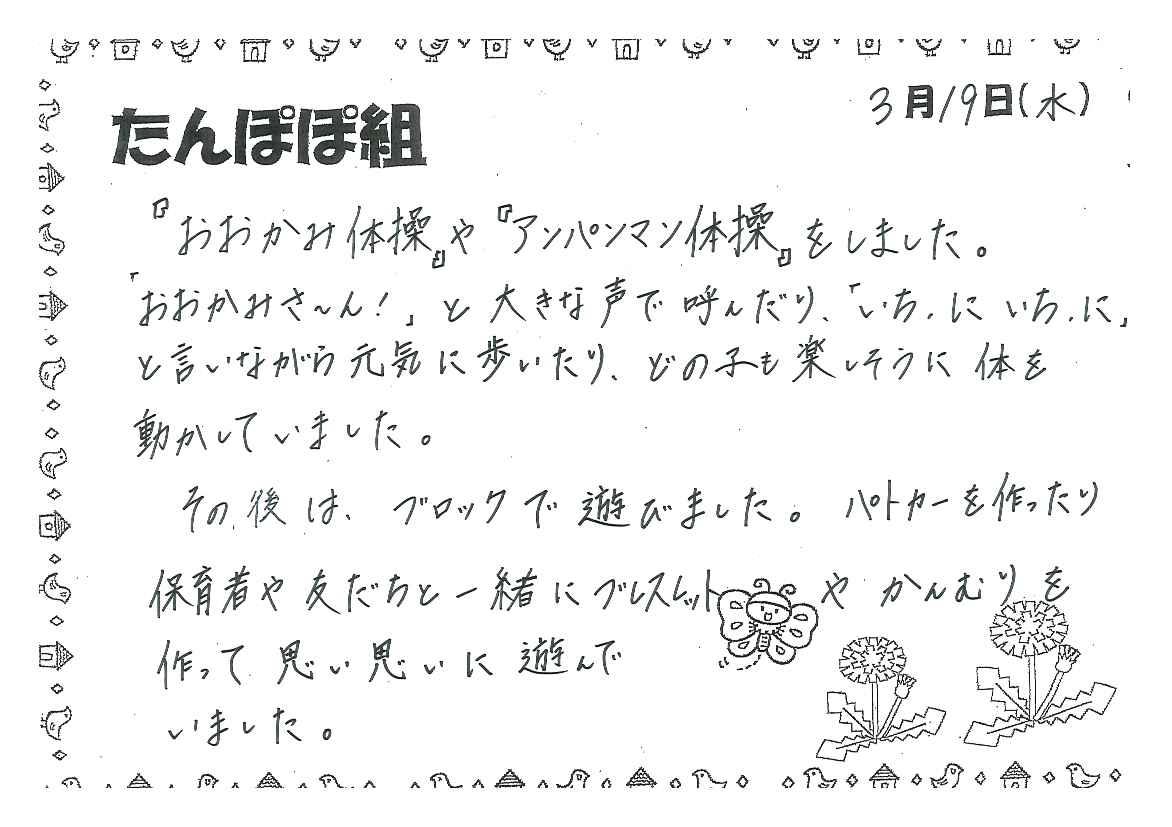 3月19日(水)
たんぽぽ組
『おおかみ体操』や『アンパンマン体操』をしました。
「おおかみさ~ん!」と大きな声で呼んだり、「いち、に いち、に」
と言いながら元気に歩いたり、どの子も楽しそうに体を
動かしていました。
その後は、ブロックで遊びました。パトカーを作ったり
保育者や友だちと一緒にブレスレットやかんむりを
作って思い思いに遊んで
いました。